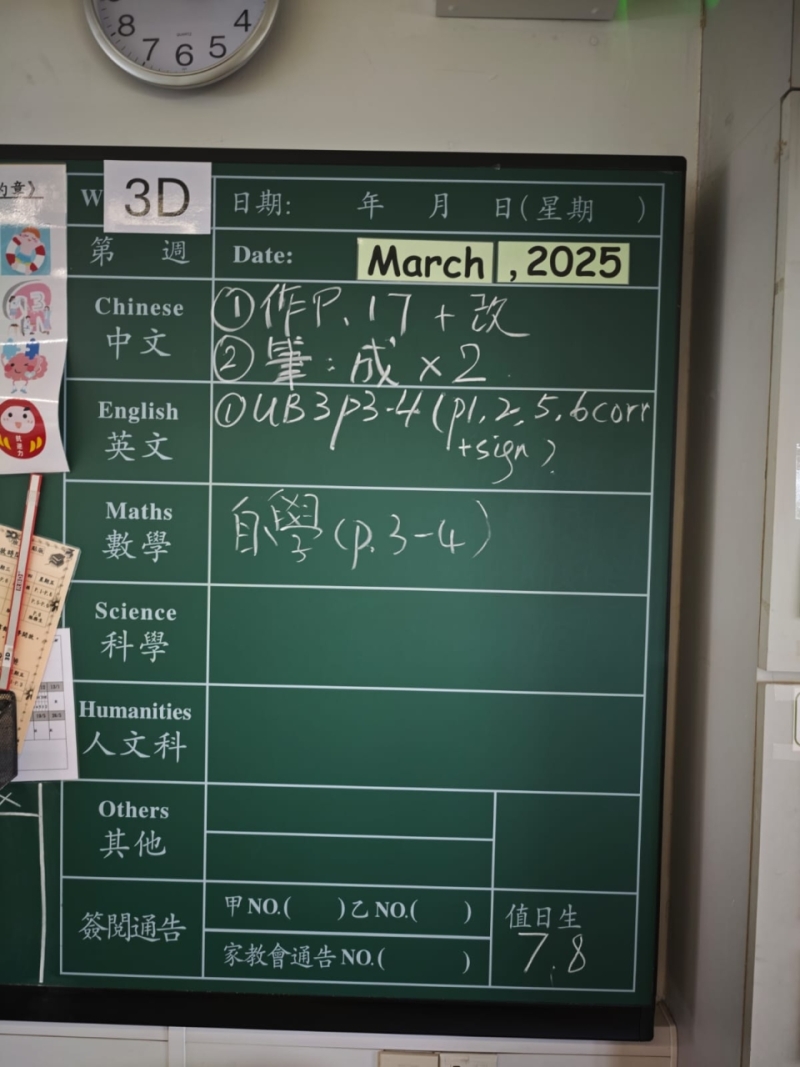 8 7 6 5 4
約章》
W 3D 日期: 年 月 日(星期 )
第 週 Date: March , 2025
Chinese
中文
①作P.17 + 改
②筆:成×2
English
英文
①UB3p3-4 (p1,2,5,6corr
+sign)
Maths
數學
自學(p.3-4)
Science
科學
Humanities
人文科
Others
其他
簽閱通告
甲NO.( )乙NO.( )
家教會通告NO.( )
值日生
7.8